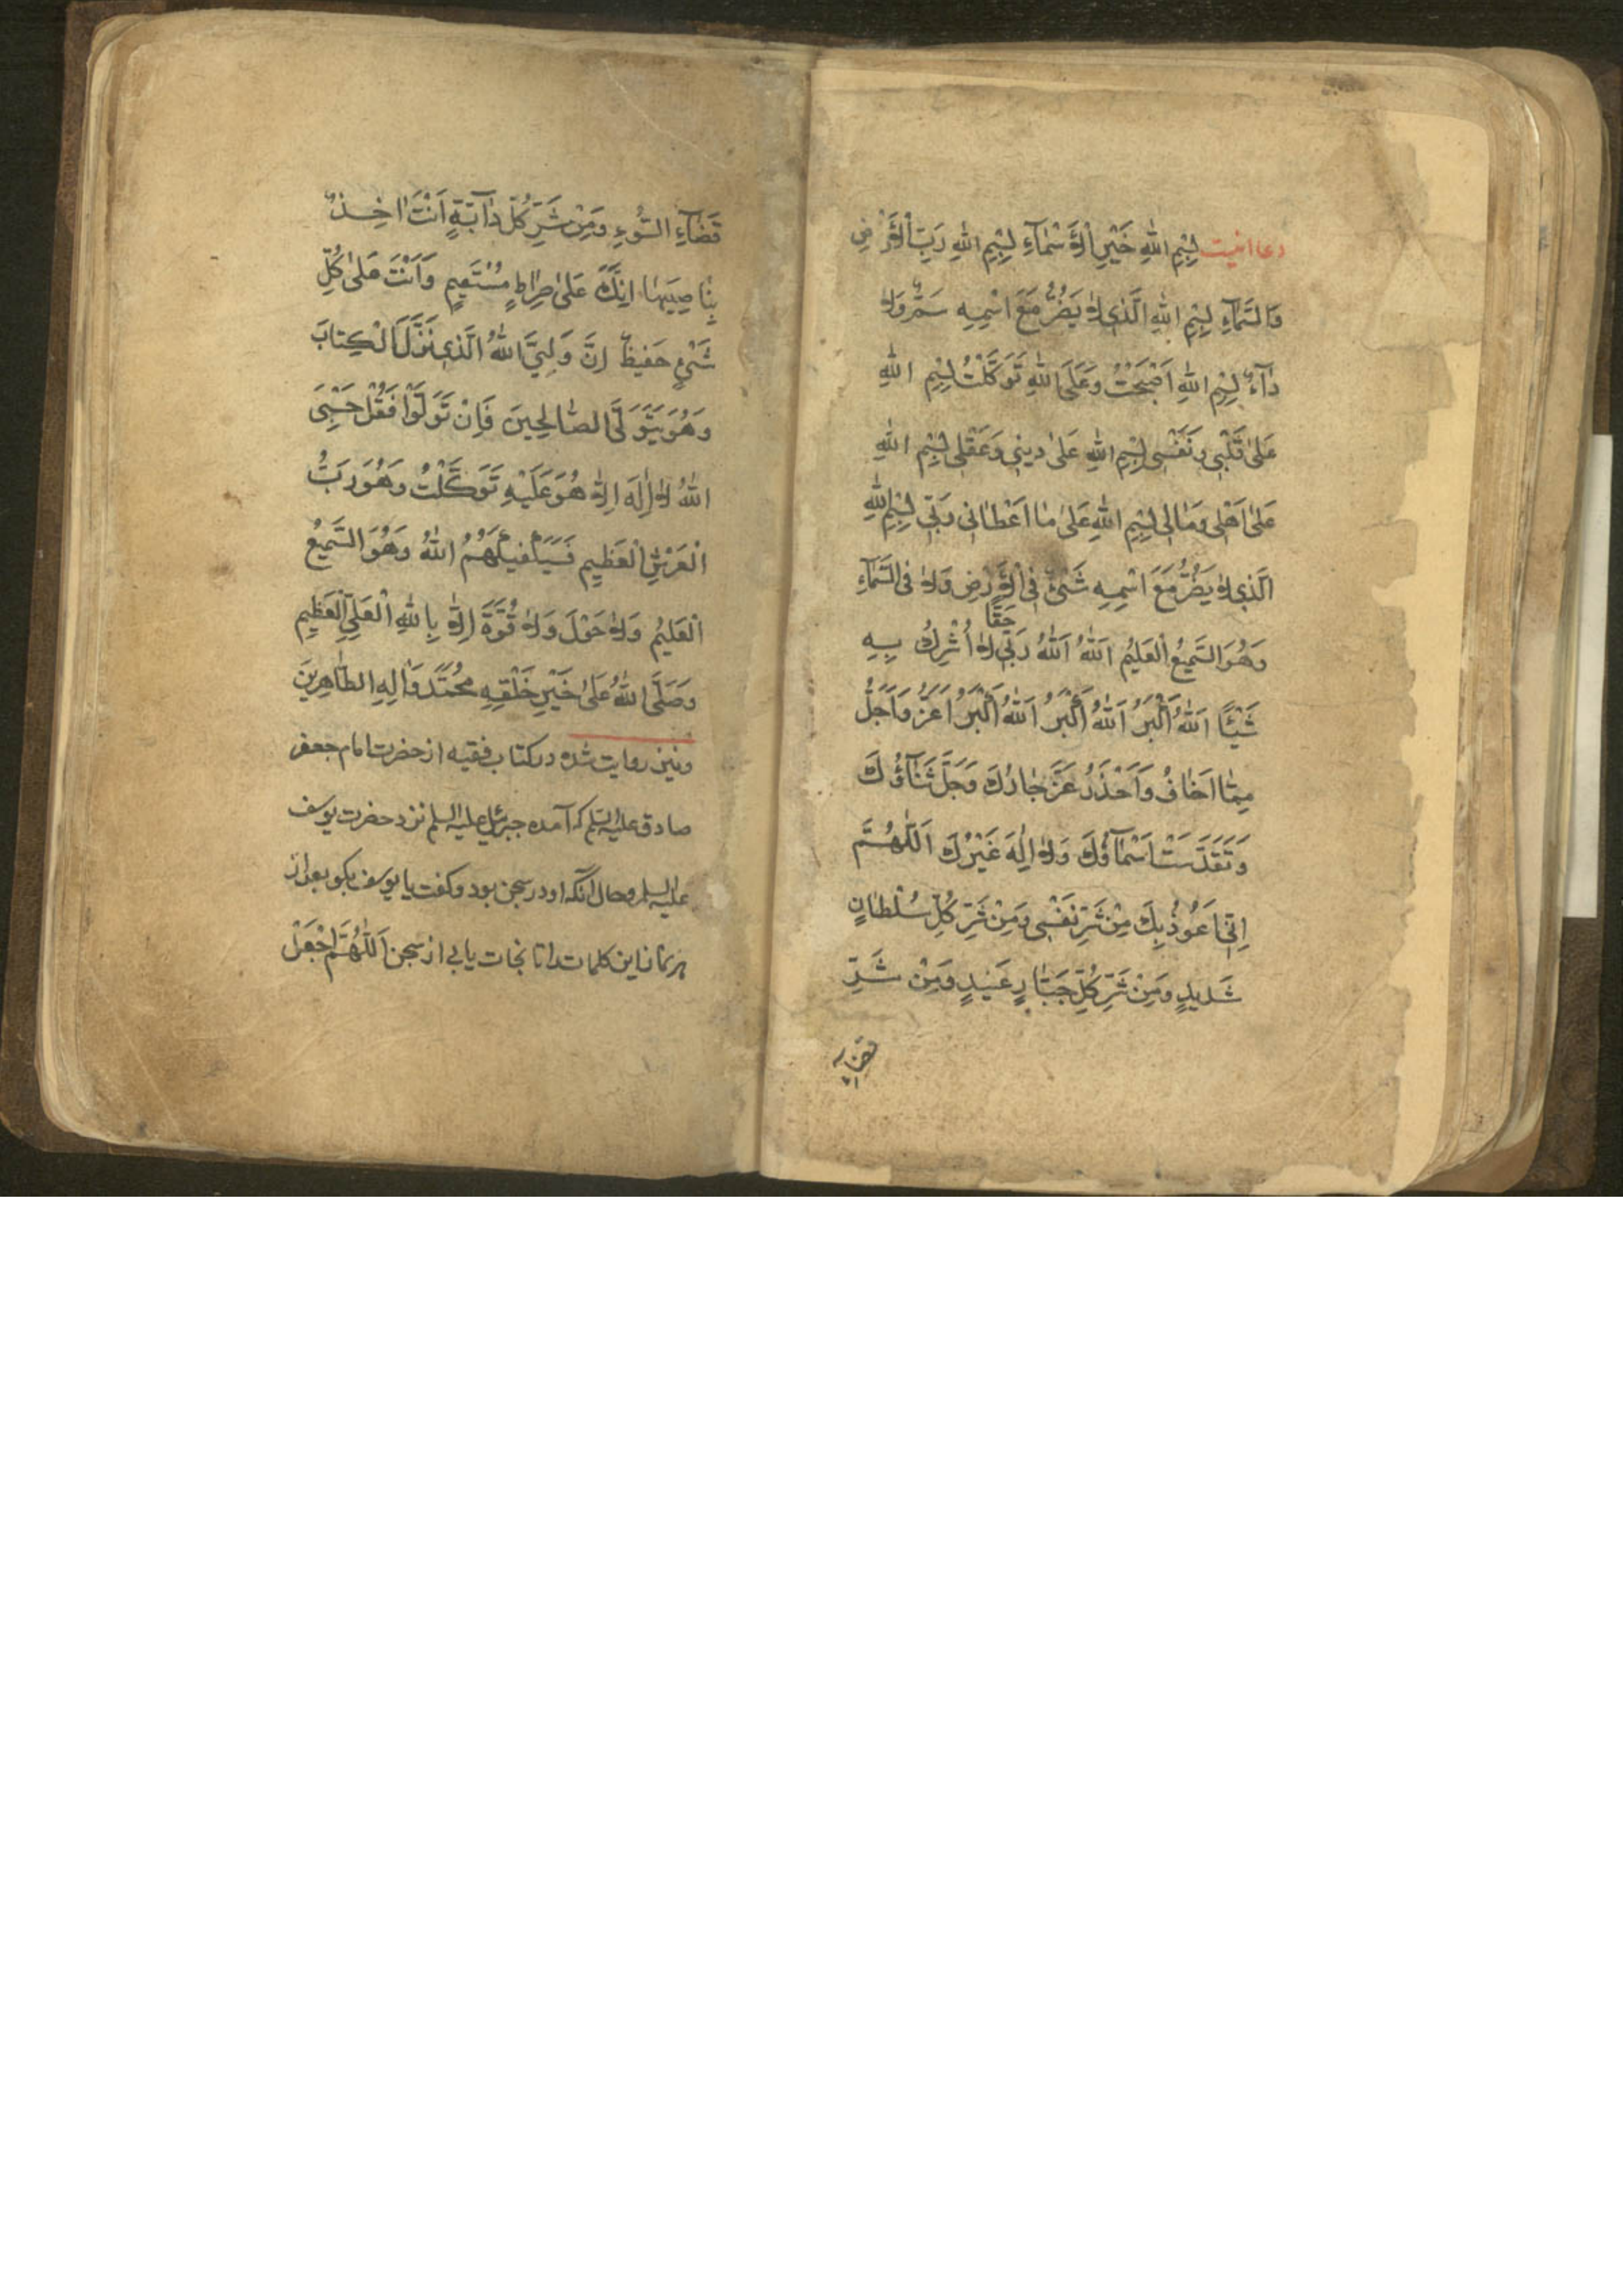 دعا اینست بِسْمِ اللهِ خَيْرِ الْأَسْمَآءِ بِسْمِ اللهِ رَبِّ الْأَرْضِ
وَالسَّمَآءِ بِسْمِ اللهِ الَّذِی لَا يَضُرُّ مَعَ اسْمِهِ سَمٌّ وَلَا
دَآءٌ بِسْمِ اللهِ اَصْبَحْتُ وَعَلَی اللهِ تَوَكَّلْتُ بِسْمِ اللهِ
عَلیٰ قَلْبِی وَنَفْسِی بِسْمِ اللهِ عَلیٰ دِينِی وَعَقْلِی بِسْمِ اللهِ
عَلیٰ اَهْلِی وَمَالِی بِسْمِ اللهِ عَلیٰ مَا اَعْطَانِی رَبِّی بِسْمِ اللهِ
الَّذِی لَا يَضُرُّ مَعَ اسْمِهِ شَیْءٌ فِی الْأَرْضِ وَلَا فِی السَّمَآءِ
وَهُوَ السَّمِيعُ الْعَلِيمُ اَللهُ اَللهُ رَبِّی حَقًّا لَا اُشْرِكُ بِهِ
شَيْئًا اَللهُ اَكْبَرُ اَللهُ اَكْبَرُ اَللهُ اَكْبَرُ اَعَزُّ وَاَجَلُّ
مِمَّا اَخَافُ وَاَحْذَرُ عَزَّ جَارُكَ وَجَلَّ ثَنَآؤُكَ
وَتَقَدَّسَتْ اَسْمَآؤُكَ وَلَا اِلٰهَ غَيْرُكَ اَللّٰهُمَّ
اِنِّی اَعُوذُ بِكَ مِنْ شَرِّ نَفْسِی وَمِنْ شَرِّ كُلِّ سُلْطَانٍ
شَدِيدٍ وَمِنْ شَرِّ كُلِّ جَبَّارٍ عَنِيدٍ وَمِنْ شَرِّ
قَضَآءِ السُّوءِ وَمِنْ شَرِّ كُلِّ دَآبَّةٍ اَنْتَ اٰخِذٌ
بِنَاصِيَتِهَا اِنَّكَ عَلیٰ صِرَاطٍ مُسْتَقِيمٍ وَاَنْتَ عَلیٰ كُلِّ
شَیْءٍ حَفِيظٌ اِنَّ وَلِيِّیَ اللهُ الَّذِی نَزَّلَ الْكِتَابَ
وَهُوَ يَتَوَلَّی الصَّالِحِينَ فَاِنْ تَوَلَّوْا فَقُلْ حَسْبِیَ
اللهُ لَا اِلٰهَ اِلَّا هُوَ عَلَيْهِ تَوَكَّلْتُ وَهُوَ رَبُّ
الْعَرْشِ الْعَظِيمِ فَسَيَكْفِيكَهُمُ اللهُ وَهُوَ السَّمِيعُ
الْعَلِيمُ وَلَا حَوْلَ وَلَا قُوَّةَ اِلَّا بِاللهِ الْعَلِيِّ الْعَظِيمِ
وَصَلَّی اللهُ عَلیٰ خَيْرِ خَلْقِهِ مُحَمَّدٍ وَاٰلِهِ الطَّاهِرِينَ
ونیز روایت شده در کتاب فقیه از حضرت امام جعفر
صادق علیه السلم که آمده جبرئیل علیه السلم نزد حضرت یوسف
علیه السلم و حال آنکه او در سجن بود و کفت یا یوسف بکو بعد از
هر نماز این کلمات را تا نجات یابی از سجن اَللّٰهُمَّ اجْعَلْ